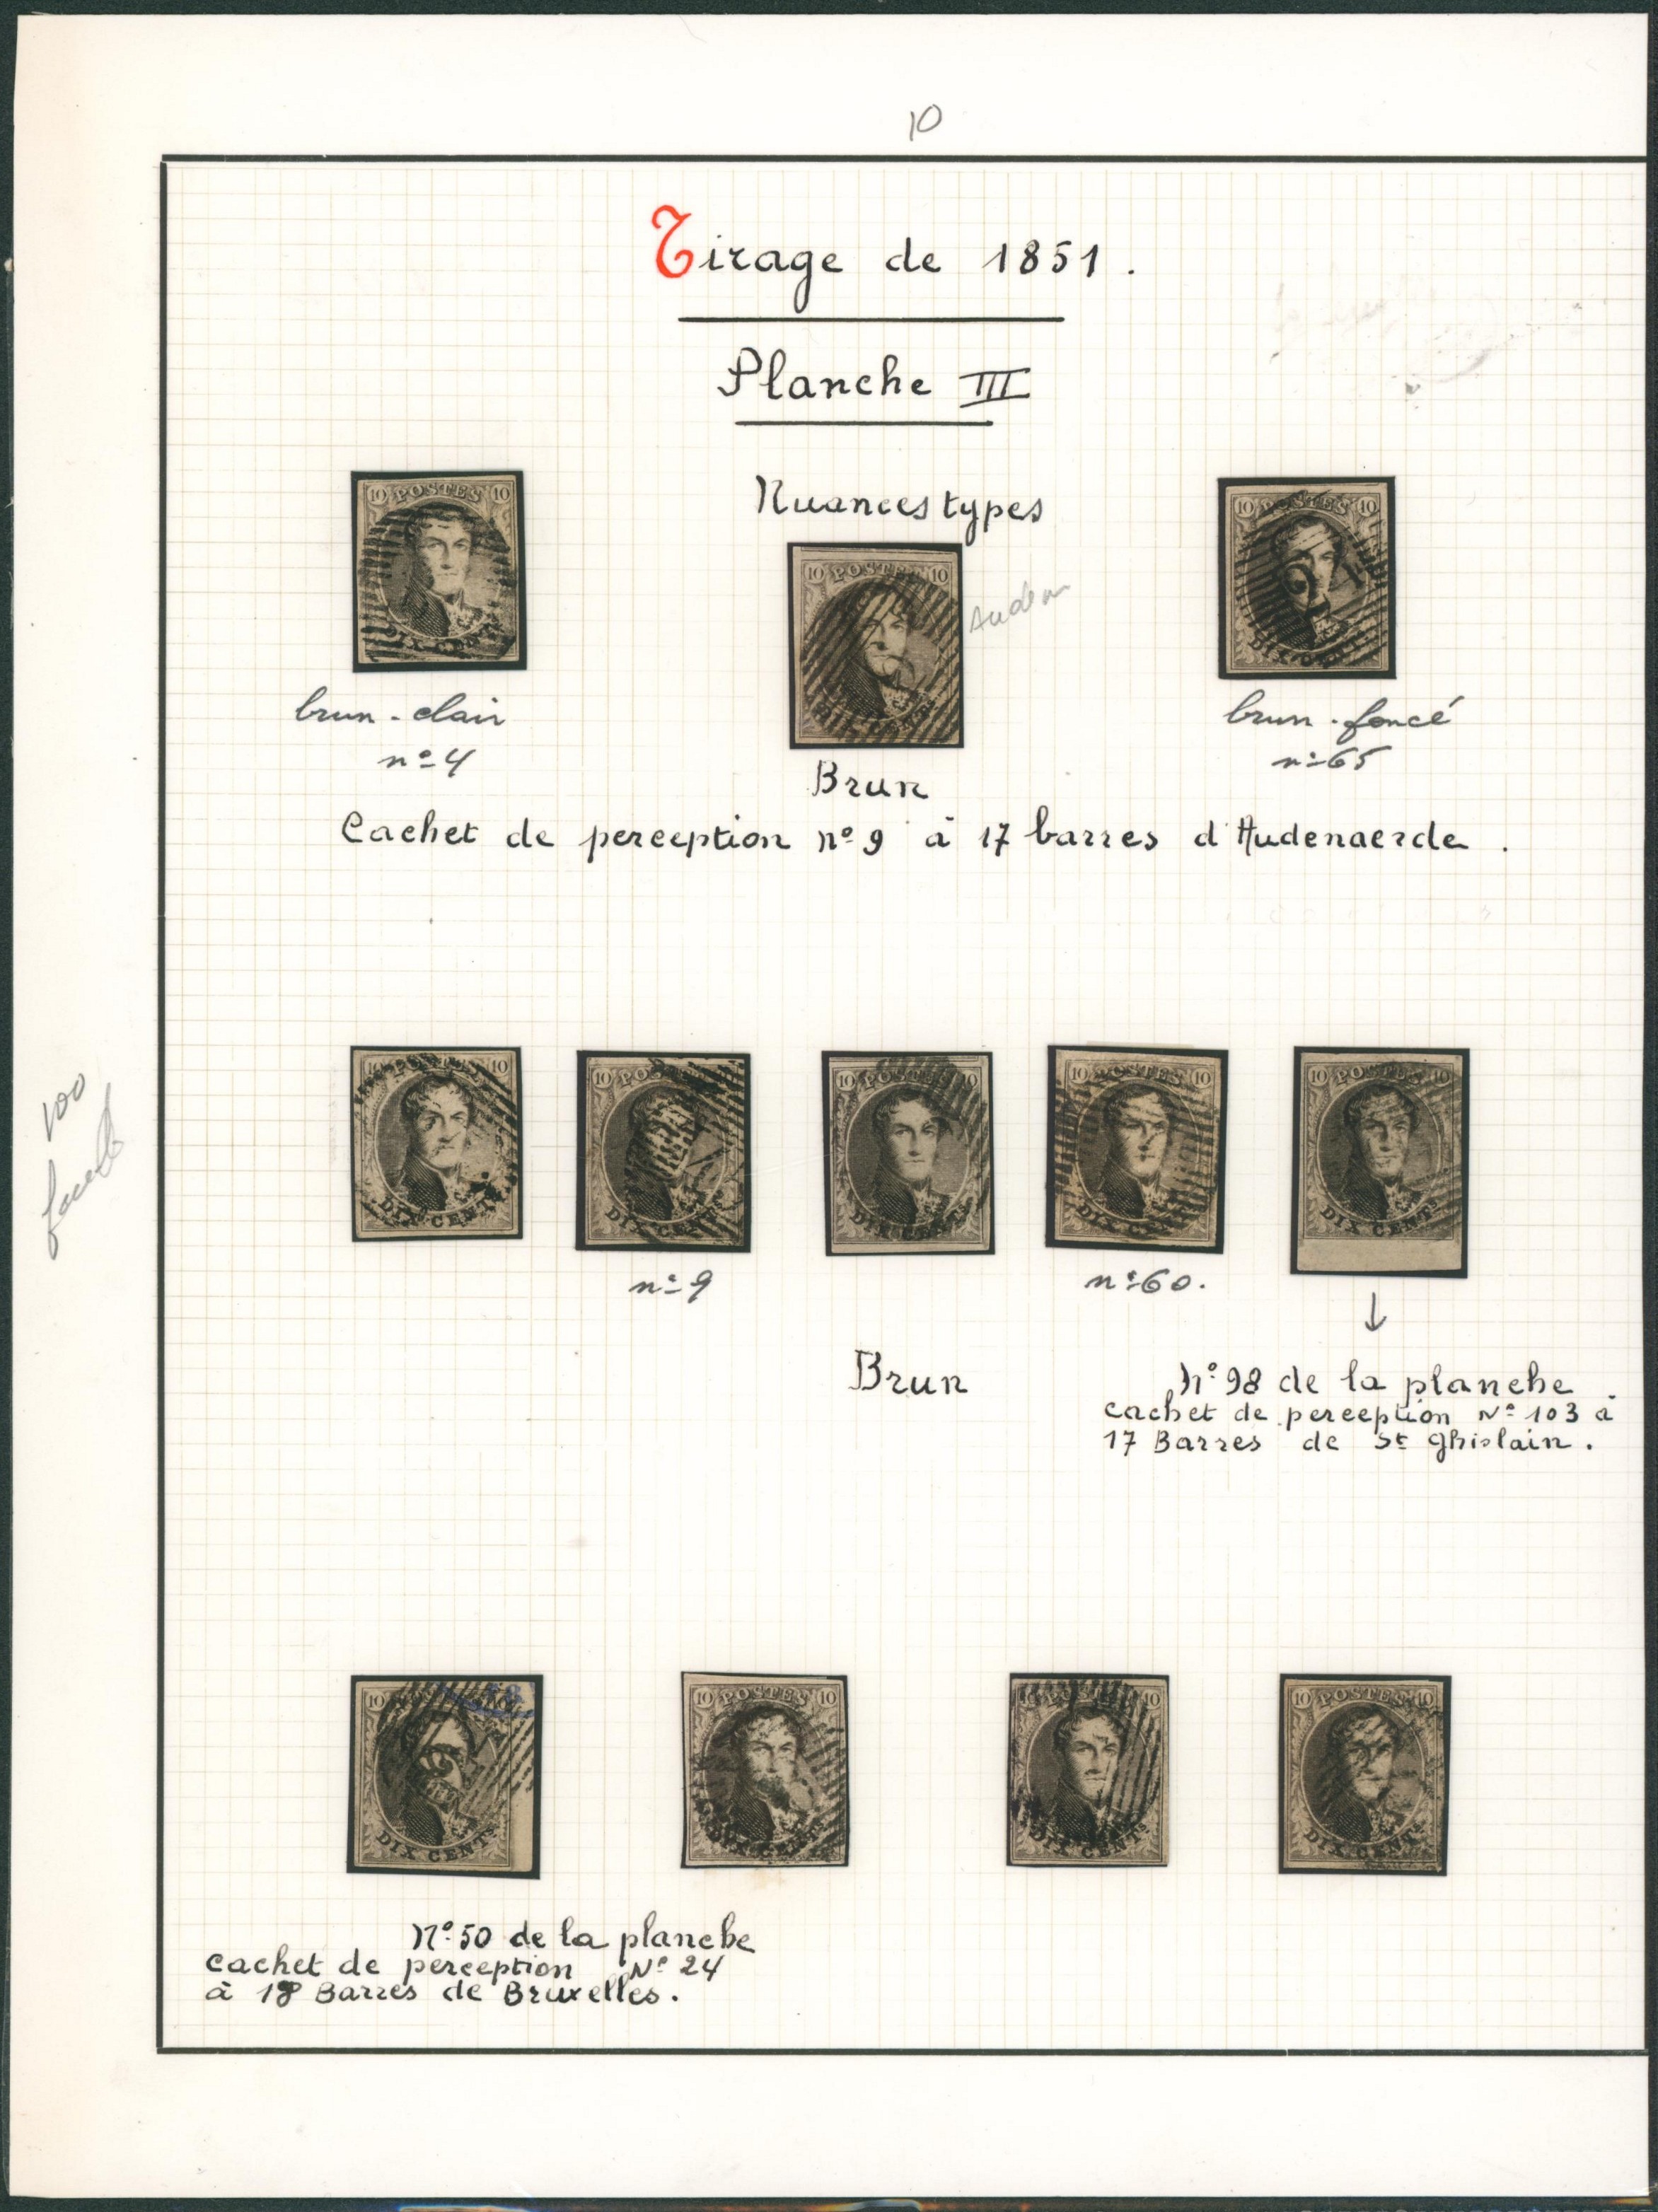 10
Tirage de 1851.
Planche III
Nuances types
10 POSTES 10
10 POSTES 10
10 POSTES 10
Auden
brun-clair
n° 4
brun-foncé
n° 65
Brun
Cachet de perception n° 9 à 17 barres d'Audenaerde.
100
10 POSTES 10
DIX CENTS
10 POSTES 10
DIX CENTS
10 POSTES 10
DIX CENTS
10 POSTES 10
DIX CENTS
10 POSTES 10
DIX CENTS
n° 9
n° 60.
Brun
N° 98 de la planche
cachet de perception N° 103 à
17 Barres de St Ghislain.
10
DIX CENTS
10 POSTES 10
DIX CENTS
10
DIX CENTS
10 POSTES 10
DIX CENTS
N° 50 de la planche
cachet de perception N° 24
à 18 Barres de Bruxelles.